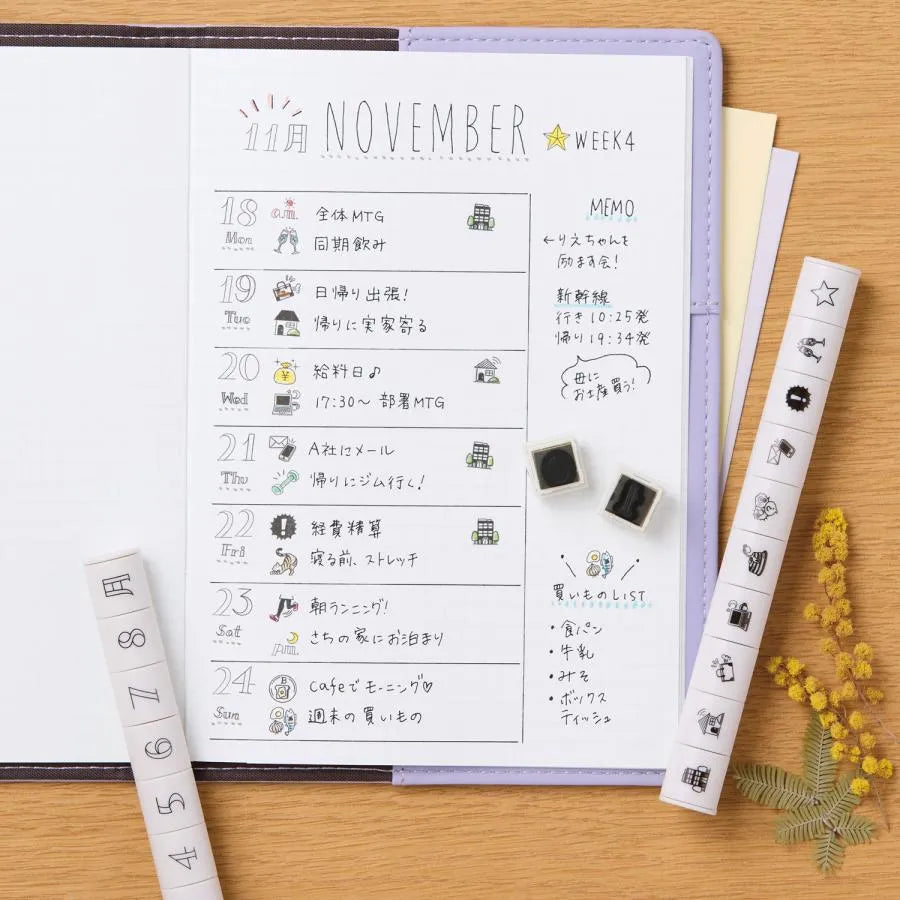 11月 NOVEMBER WEEK4
18 a.m. 全体MTG
Mon 同期飲み
19 日帰り出張!
Tue 帰りに実家寄る
20 ¥ 給料日♪
Wed 17:30〜 部署MTG
21 A社にメール
Thu 帰りにジム行く!
22 ! 経費精算
Fri 寝る前、ストレッチ
23 朝ランニング!
Sat p.m. さちの家にお泊まり
24 B cafeでモーニング♡
Sun 週末の買いもの
MEMO
←りえちゃんを
励ます会!
新幹線
行き10:25発
帰り19:34発
母に
お土産買う!
買いものLIST
・食パン
・牛乳
・みそ
・ボックス
ティッシュ
月
8
7
6
5
4
!